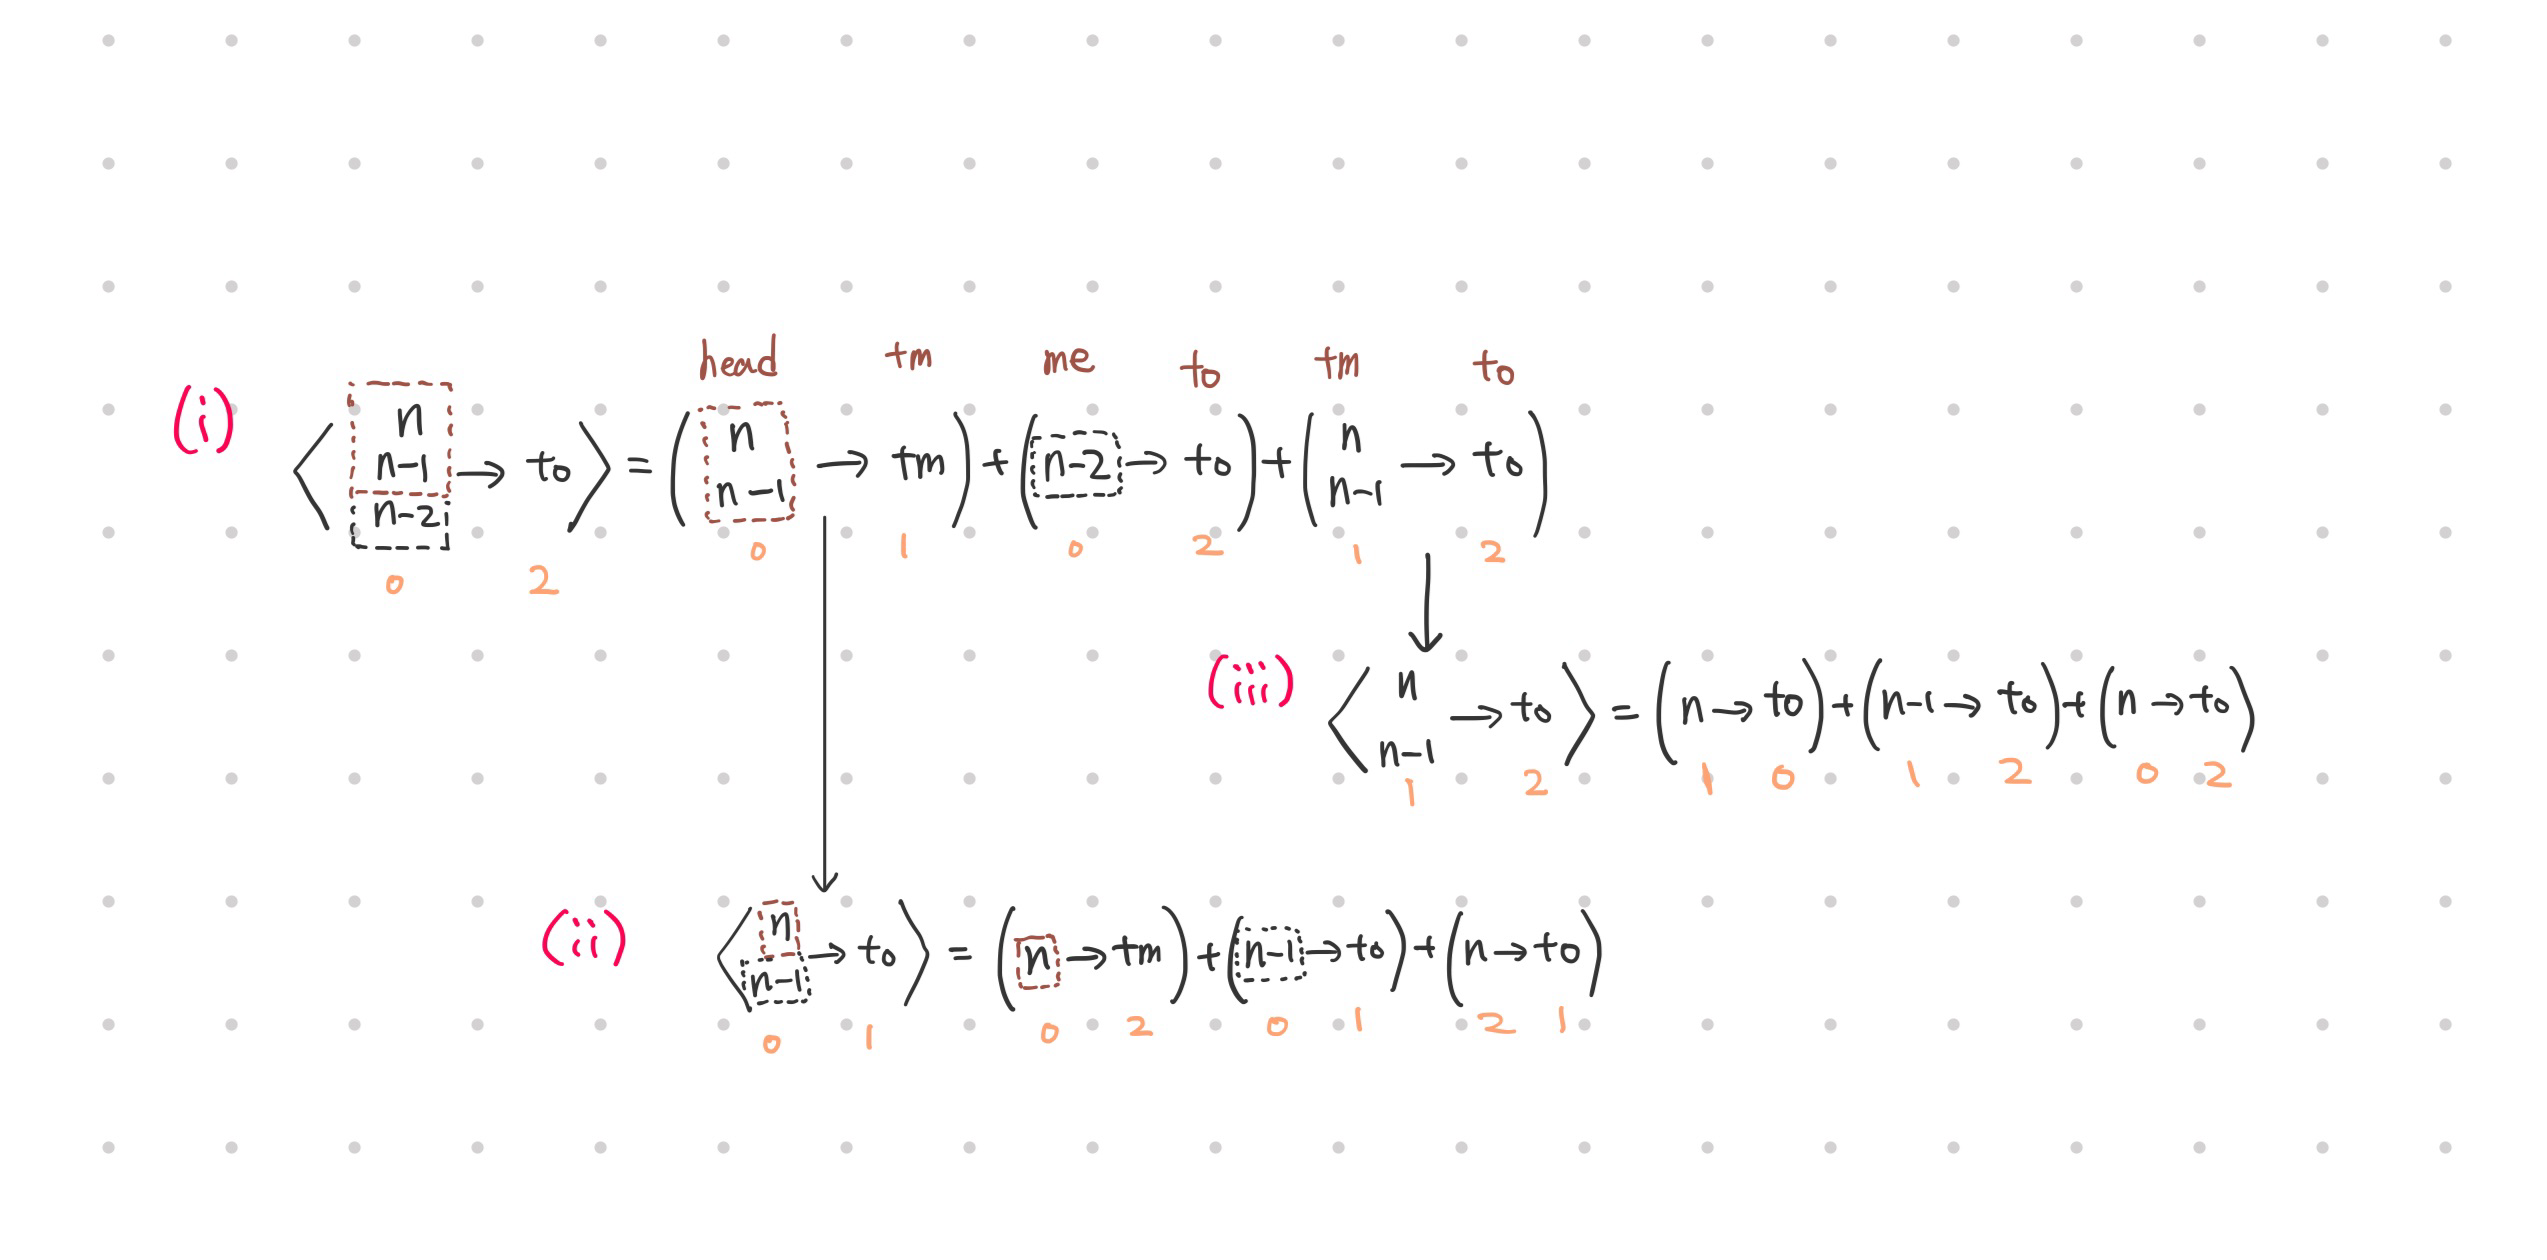 head tm me to tm to
(i) ⟨ n n-1 n-2 → to ⟩ = ( n n-1 → tm ) + ( n-2 → to ) + ( n n-1 → to )
0 2 0 1 0 2 1 2
(iii) ⟨ n n-1 → to ⟩ = ( n → to ) + ( n-1 → to ) + ( n → to )
1 2 1 0 1 2 0 2
(ii) ⟨ n n-1 → to ⟩ = ( n → tm ) + ( n-1 → to ) + ( n → to )
0 1 0 2 0 1 2 1